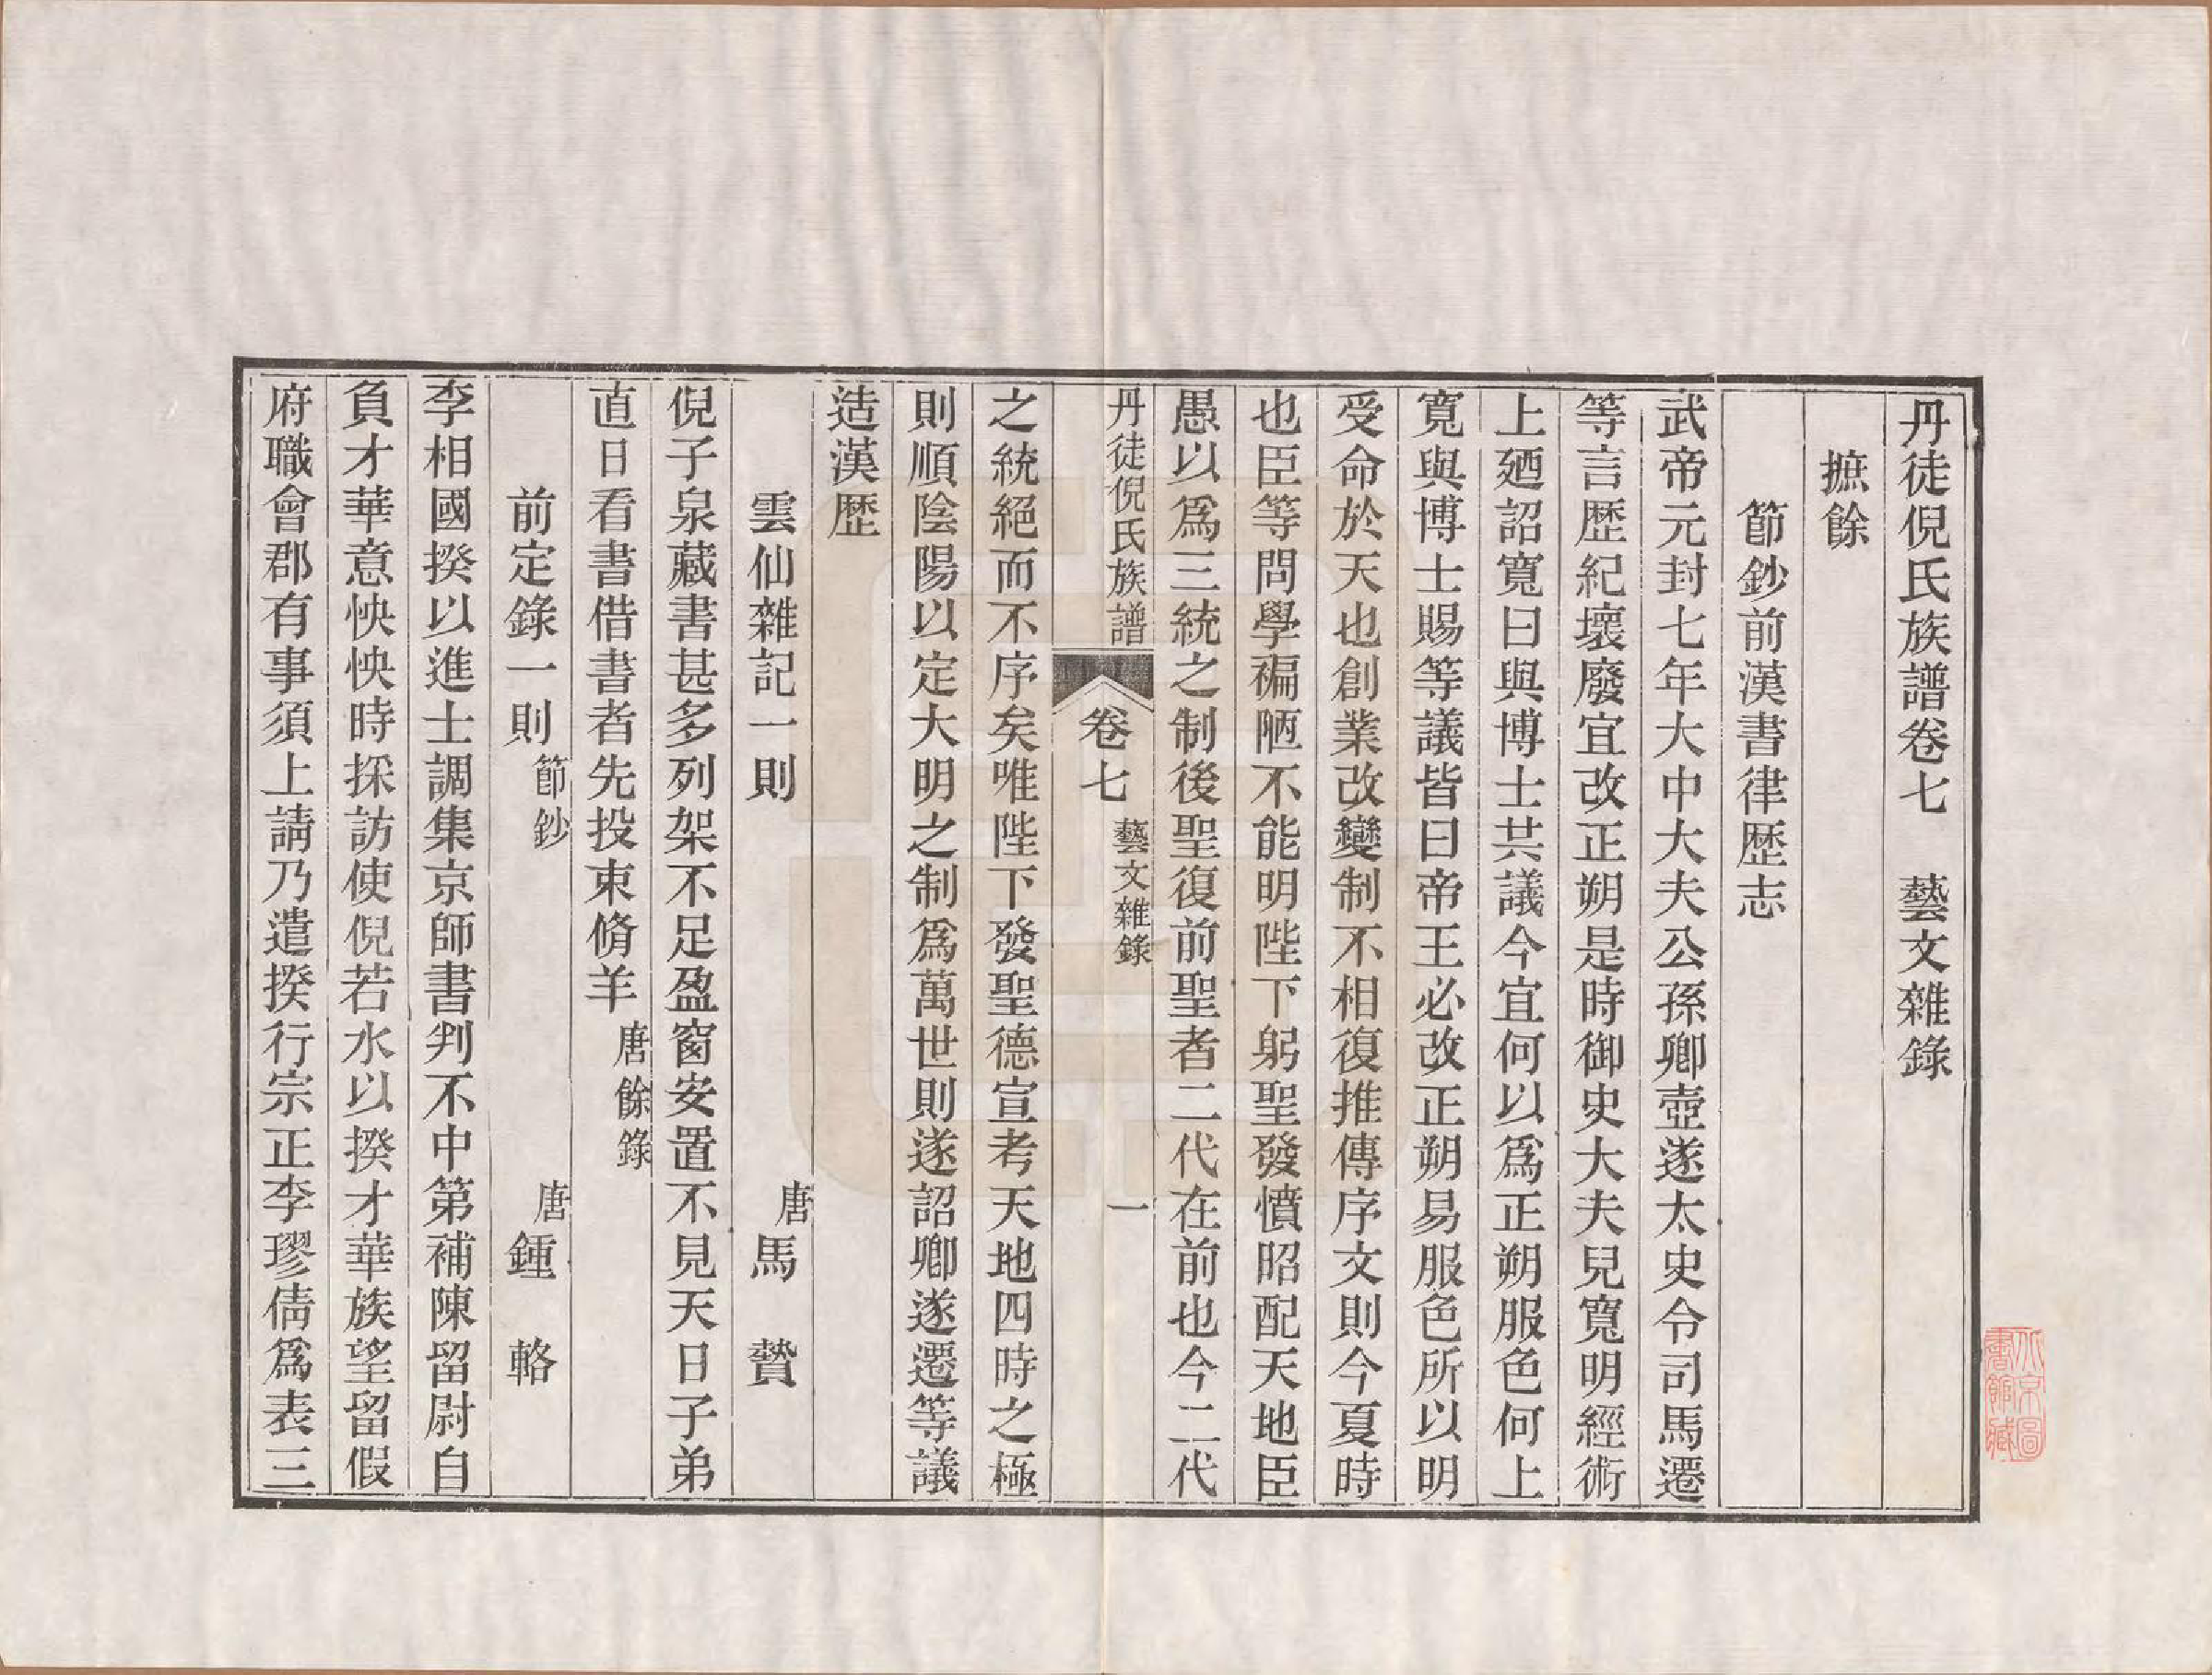 丹徒倪氏族譜卷七　藝文雜錄
摭餘
節鈔前漢書律歷志
武帝元封七年大中大夫公孫卿壺遂太史令司馬遷
等言歷紀壞廢宜改正朔是時御史大夫兒寬明經術
上廼詔寬曰與博士共議今宜何以爲正朔服色何上
寬與博士賜等議皆曰帝王必改正朔易服色所以明
受命於天也創業改變制不相復推傳序文則今夏時
也臣等問學褊陋不能明陛下躬聖發憤昭配天地臣
愚以爲三統之制後聖復前聖者二代在前也今二代
丹徒倪氏族譜　卷七　藝文雜錄　一
之統絕而不序矣唯陛下發聖德宣考天地四時之極
則順陰陽以定大明之制爲萬世則遂詔卿遂遷等議
造漢歷
雲仙雜記一則　唐馬　贄
倪子泉藏書甚多列架不足盈窗安置不見天日子弟
直日看書借書者先投束脩羊　唐餘錄
前定錄一則　節鈔　唐鍾　輅
李相國揆以進士調集京師書判不中第補陳留尉自
負才華意怏怏時採訪使倪若水以揆才華族望留假
府職會郡有事須上請乃遣揆行宗正李璆倩爲表三
北京圖書館藏